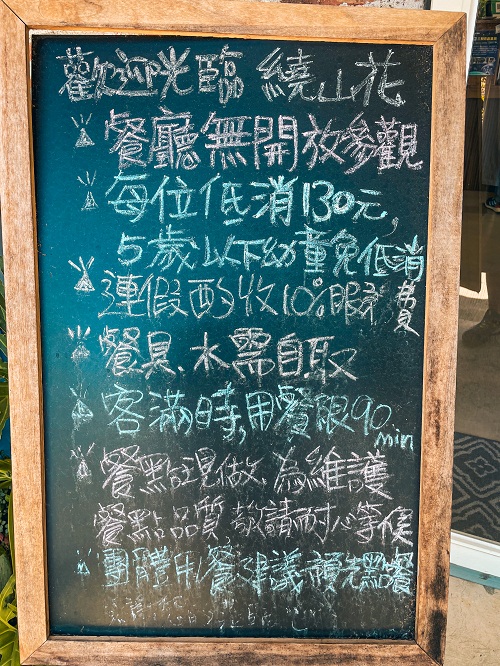 歡迎光臨 繞山花
餐廳無開放參觀
每位低消130元,
5歲以下幼童免低消
連假酌收10%服務費
餐具、水需自取
客滿時,用餐限90min
餐點現做、為維護
餐點品質,敬請耐心等候
團體用餐建議預先點餐